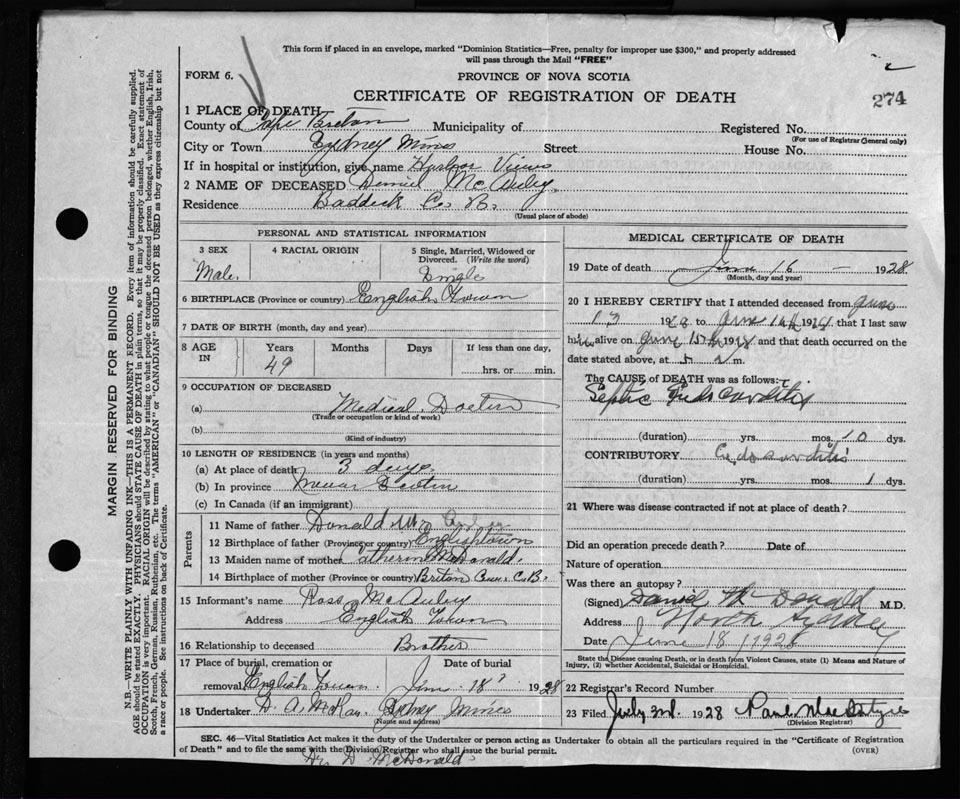 This form if placed in an envelope, marked "Dominion Statistics—Free, penalty for improper use $300," and properly addressed
will pass through the Mail "FREE"
FORM 6.
PROVINCE OF NOVA SCOTIA
CERTIFICATE OF REGISTRATION OF DEATH
274
1 PLACE OF DEATH
County of Cape Breton Municipality of Registered No.
(For use of Registrar General only)
City or Town Sydney Mines Street House No.
If in hospital or institution, give name Harbor View
2 NAME OF DECEASED Daniel McAuley
Residence Baddeck C. B.
(Usual place of abode)
PERSONAL AND STATISTICAL INFORMATION
3 SEX 4 RACIAL ORIGIN 5 Single, Married, Widowed or
Divorced. (Write the word)
Male. Single
6 BIRTHPLACE (Province or country) English Town
7 DATE OF BIRTH (month, day and year)
8 AGE IN Years Months Days If less than one day,
49 hrs. or min.
9 OCCUPATION OF DECEASED
(a) Medical Doctor
(Trade or occupation or kind of work)
(b)
(Kind of industry)
10 LENGTH OF RESIDENCE (in years and months)
(a) At place of death 3 days.
(b) In province
(c) In Canada (if an immigrant)
Parents
11 Name of father Donald
12 Birthplace of father (Province or country) Englishtown
13 Maiden name of mother Catherine McDonald.
14 Birthplace of mother (Province or country) Briton Cove C.B.
15 Informant's name Ross McAuley
Address English Town
16 Relationship to deceased Brother
17 Place of burial, cremation or Date of burial
removal English Town June 18 1928
18 Undertaker D. A. McKay Sydney Mines
(Name and address)
MEDICAL CERTIFICATE OF DEATH
19 Date of death June 16 — 1928
(Month, day and year)
20 I HEREBY CERTIFY that I attended deceased from June
13 1928 to June 16th 1928 that I last saw
him alive on June 15th 1928 and that death occurred on the
date stated above, at 5 m.
The CAUSE of DEATH was as follows:
Septic Endocarditis
(duration) yrs. mos. 10 dys.
CONTRIBUTORY Endocarditis
(duration) yrs. mos. 1 dys.
21 Where was disease contracted if not at place of death?
Did an operation precede death? Date of
Nature of operation
Was there an autopsy?
(Signed) Daniel McDonald M.D.
Address North Sydney
Date June 18 / 1928
State the Disease causing Death, or in death from Violent Causes, state (1) Means and Nature of
Injury, (2) whether Accidental, Suicidal or Homicidal.
22 Registrar's Record Number
23 Filed July 3rd. 1928
(Division Registrar)
SEC. 46—Vital Statistics Act makes it the duty of the Undertaker or person acting as Undertaker to obtain all the particulars required in the "Certificate of Registration
of Death" and to file the same with the Division Registrar who shall issue the burial permit.
(OVER)
Dr. D. McDonald
MARGIN RESERVED FOR BINDING
N.B.—WRITE PLAINLY WITH UNFADING INK—THIS IS A PERMANENT RECORD. Every item of information should be carefully supplied.
AGE should be stated EXACTLY. PHYSICIANS should STATE CAUSE OF DEATH in plain terms, so that it may be properly classified. Exact statement of
OCCUPATION is very important. RACIAL ORIGIN will be described by stating to what people or tongue the deceased person belonged, whether English, Irish,
Scotch, French, German, Russian, Ruthenian, etc. The terms "AMERICAN" or "CANADIAN" SHOULD NOT BE USED as they express citizenship but not
a race or people. See instructions on back of Certificate.